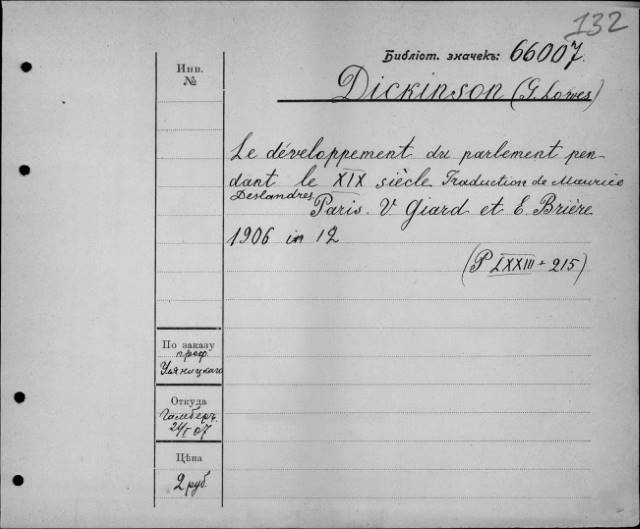 132
Библіот. значекъ: 66007.
Инв.
№
Dickinson (G. Lowes)
Le développement du parlement pen-
dant le XIX siècle Traduction de Maurice
Deslandres Paris. V. Giard et E. Brière
1906 in 12
(P LXXIII + 215)
По заказу
проф.
Ульяницкаго
Откуда
Гамберъ.
24/I 07
Цѣна
2 руб